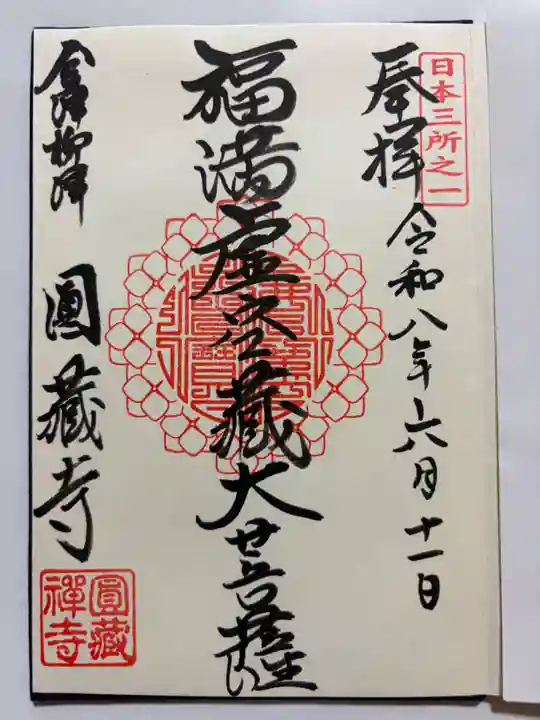 日本三所之一
奉拝 令和八年六月十一日
福満虚空藏大菩薩
會津柳津 圓藏寺
圓藏禪寺